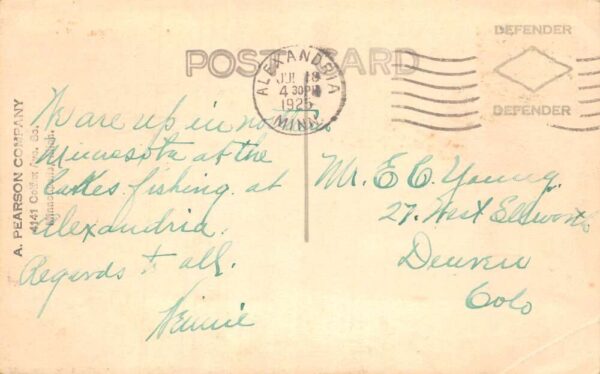 POST CARD
DEFENDER
DEFENDER
ALEXANDRIA
4 30PM
1925
MINN.
A. PEARSON COMPANY
4141 Colfax Ave. So.
We are up in no
Minnesota at the
Lakes fishing at
Alexandria.
Regards to all.
Mr. E C Young
27 West Ellsworth
Denver
Colo